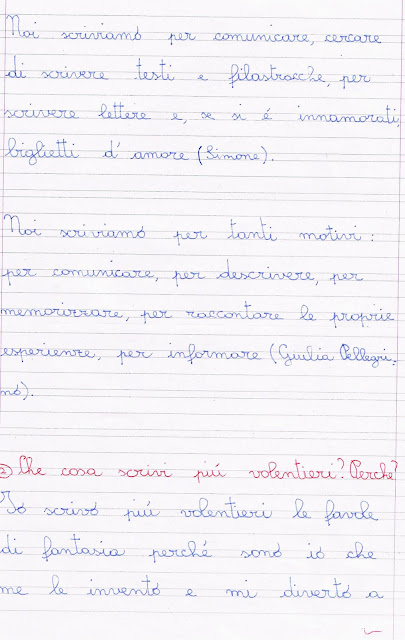 Noi scriviamo per comunicare, cercare
di scrivere testi e filastrocche, per
scrivere lettere e, se si é innamorati,
biglietti d'amore (Simone).
Noi scriviamo per tanti motivi:
per comunicare, per descrivere, per
memorizzare, per raccontare le proprie
esperienze, per informare (Giulia Pellegri-
no).
② Che cosa scrivi piú volentieri? Perché?
Io scrivo piú volentieri le favole
di fantasia perché sono io che
me le invento e mi diverto a